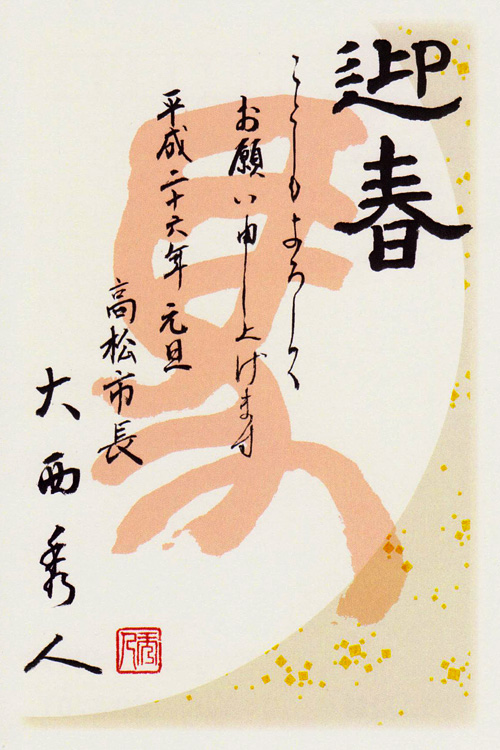 迎春
ことしもよろしく
お願い申し上げます
平成二十六年 元旦
高松市長
大西秀人
馬
秀人